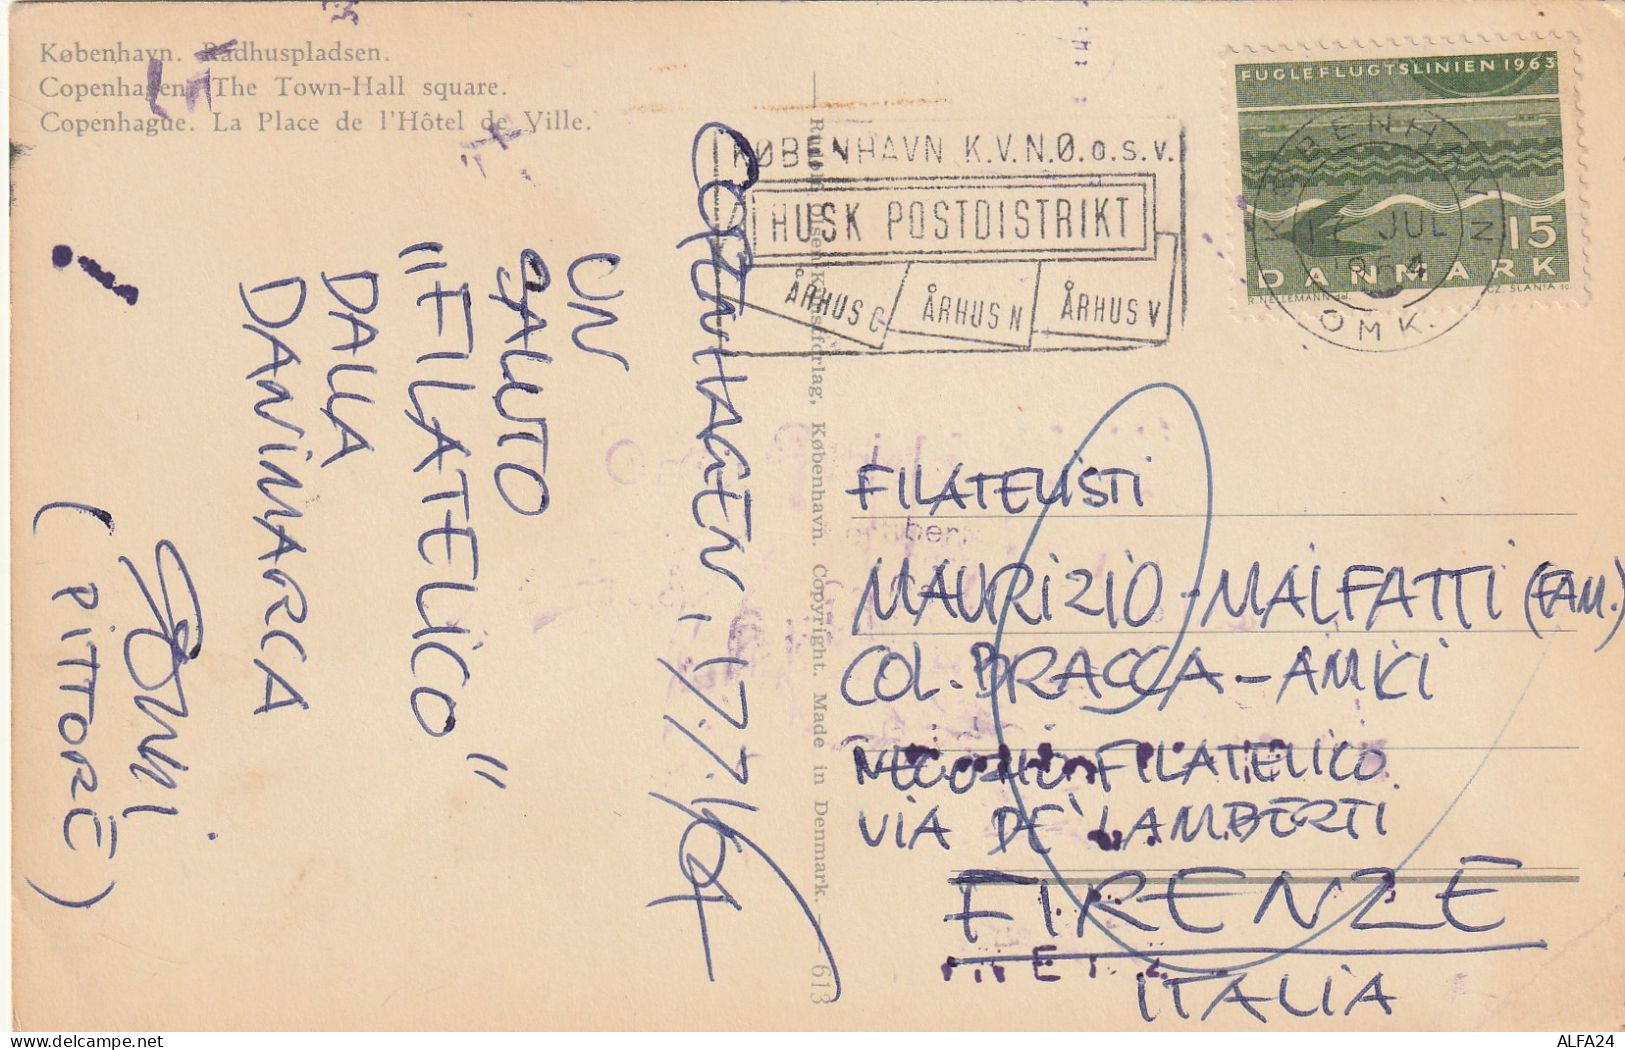 København. Rådhuspladsen.
Copenhagen. The Town-Hall square.
Copenhague. La Place de l'Hôtel de Ville.
KØBENHAVN K.V.N.Ø.o.s.v.
HUSK POSTDISTRIKT
ÅRHUS C
ÅRHUS N
ÅRHUS V
FUGLEFLUGTSLINIEN 1963
15
DANMARK
R. NELLEMANN del.
CZ. SLANIA sc.
KØBENHAVN
17 JUL
1964
OMK.
COPENHAGEN, 17.7.1964
UN
SALUTO
"FILATELICO"
DALLA
DANIMARCA
!
(PITTORE)
Rudolf Olsens Kunstforlag, København. Copyright. Made in Denmark. — 613
FILATELISTI
MAURIZIO - MALFATTI (FAM.)
COL. BRASCA - AMICI
NEGOZIO FILATELICO
VIA DE' LAMBERTI
FIRENZE
ITALIA
ALFA24